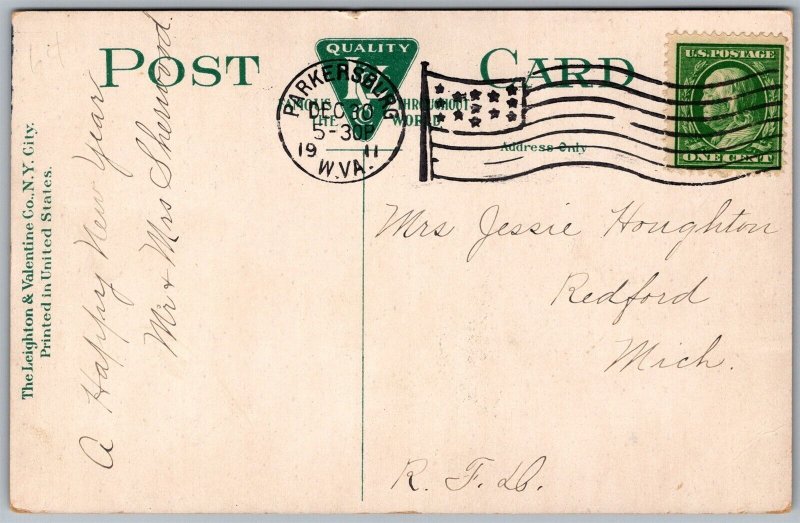 POST CARD
QUALITY
FAMOUS THROUGHOUT
WORLD
PARKERSBURG
DEC 30
5-30P
19 11
W.VA.
U.S. POSTAGE
ONE CENT
Address Only
The Leighton & Valentine Co., N.Y. City.
Printed in United States.
A Happy New Year
Mr & Mrs Sherwood
Mrs Jessie Houghton
Redford
Mich.
R. F. D.